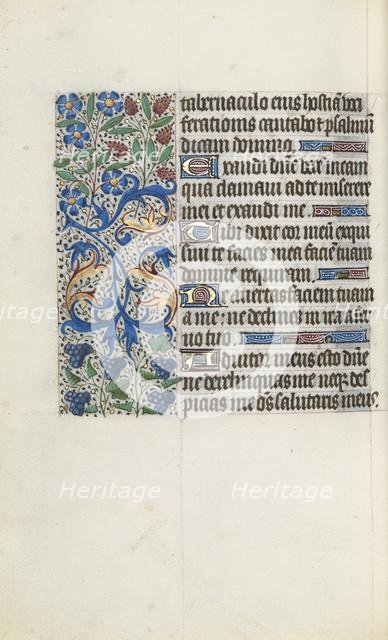 tabernaculo eius hostiam voci
ferationis cantabo et psalmum
dicam domino
Exaudi dñe vocē meam
qua clamaui ad te miserere
mei et exaudi me
Tibi dixit cor meū exqui
siuit te facies mea faciē tuam
domine requiram
Ne auertas faciem tuam
a me: ne declines in ira a ser
uo tuo
Adiutor meus esto dñe
ne derelinquas me neqꝫ des
picias me dˢ salutaris meus
Heritage
Heritage
Heritage
Heritage